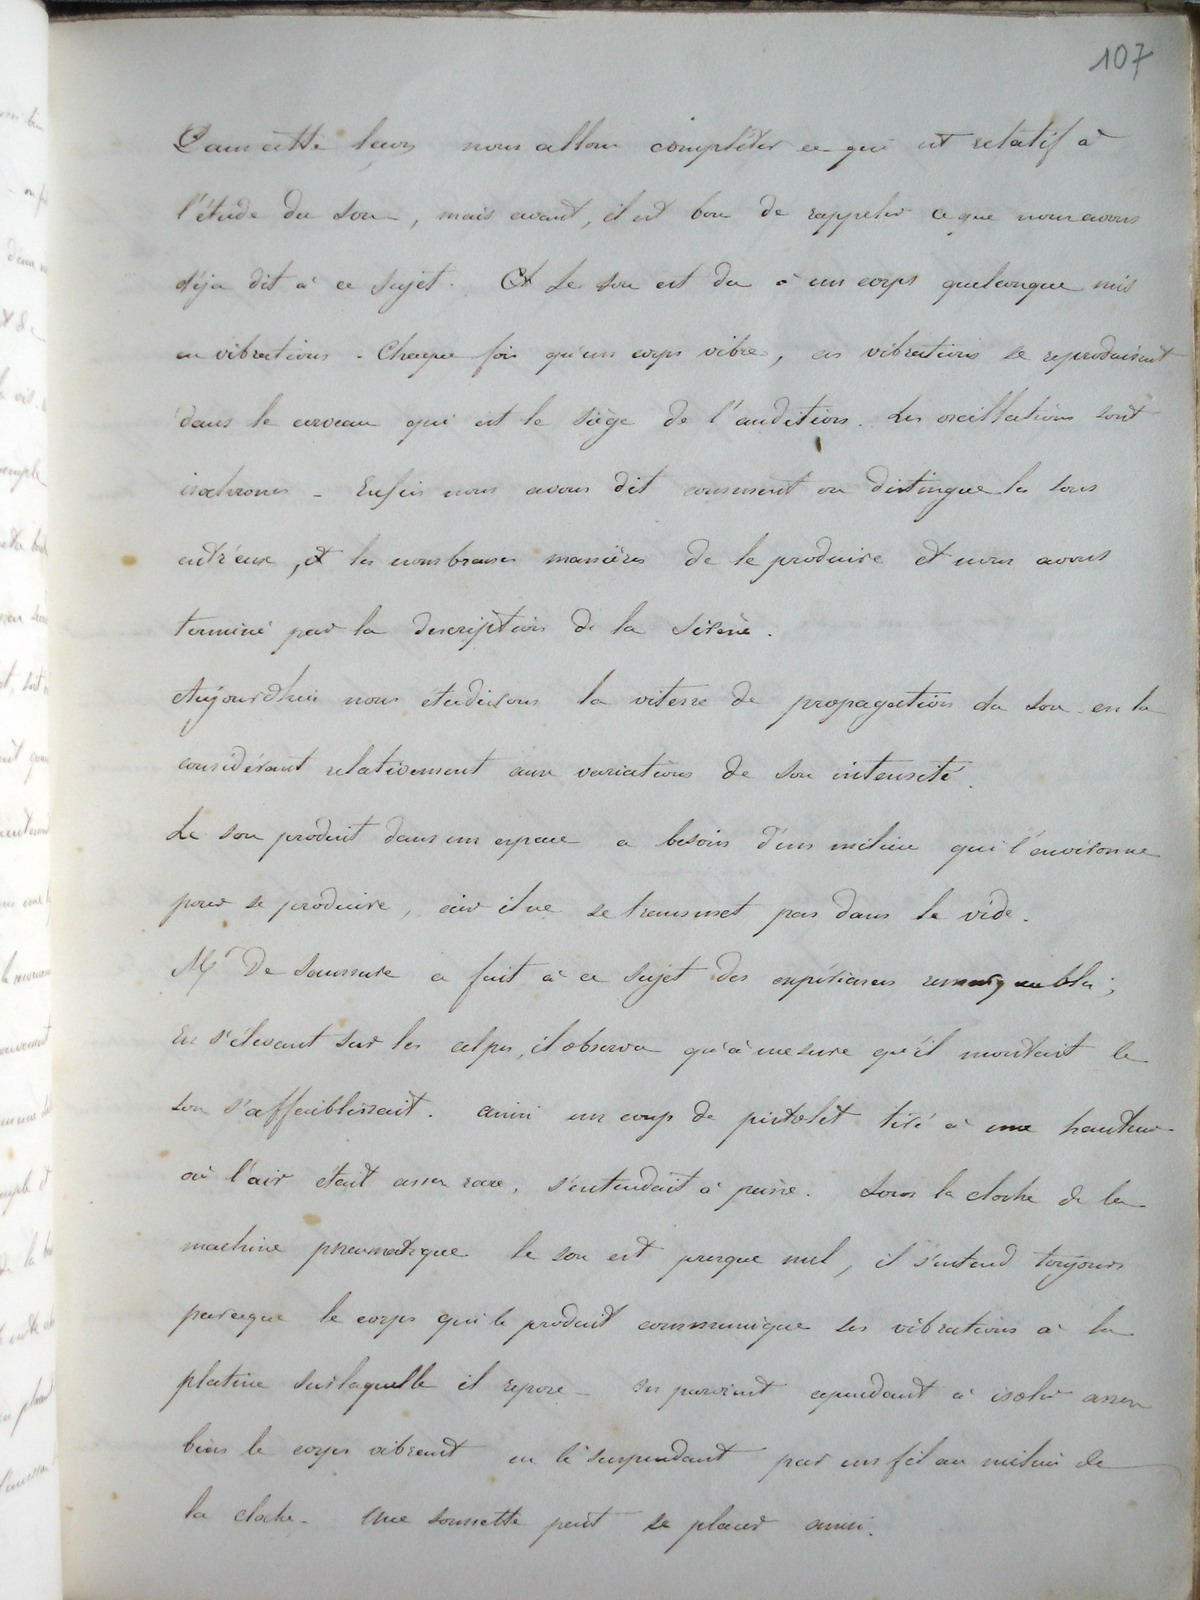 107
Dans cette leçon nous allons compléter ce qui est relatif à
l'étude du son, mais avant, il est bon de rappeler ce que nous avons
déja dit à ce sujet. Le son est du à un corps quelconque mis
en vibrations - Chaque fois qu'un corps vibre, ces vibrations se reproduisent
dans le cerveau qui est le siège de l'audition. Les oscillations sont
isochrones - Enfin nous avons dit comment on distingue les sons
entr'eux, et les nombreuses manières de le produire et nous avons
terminé par la description de la sirène.
Aujourd'hui nous étudierons la vitesse de propagation du son en la
considérant relativement aux variations de son intensité.
Le son produit dans un espace a besoin d'un milieu qui l'environne
pour se produire, car il ne se transmet pas dans le vide.
Mr De Saussure a fait à ce sujet des expériences remarquables;
En s'élevant sur les alpes, il observa qu'à mesure qu'il montait le
son s'affaiblissait. ainsi un coup de pistolet tiré à une hauteur
où l'air était assez rare, s'entendait à peine. Sous la cloche de la
machine pneumatique le son est presque nul, il s'entend toujours
parceque le corps qui le produit communique ses vibrations à la
platine sur laquelle il repose - On parvient cependant à isoler assez
bien le corps vibrant en le suspendant par un fil au milieu de
la cloche - Une sonnette peut se placer ainsi.